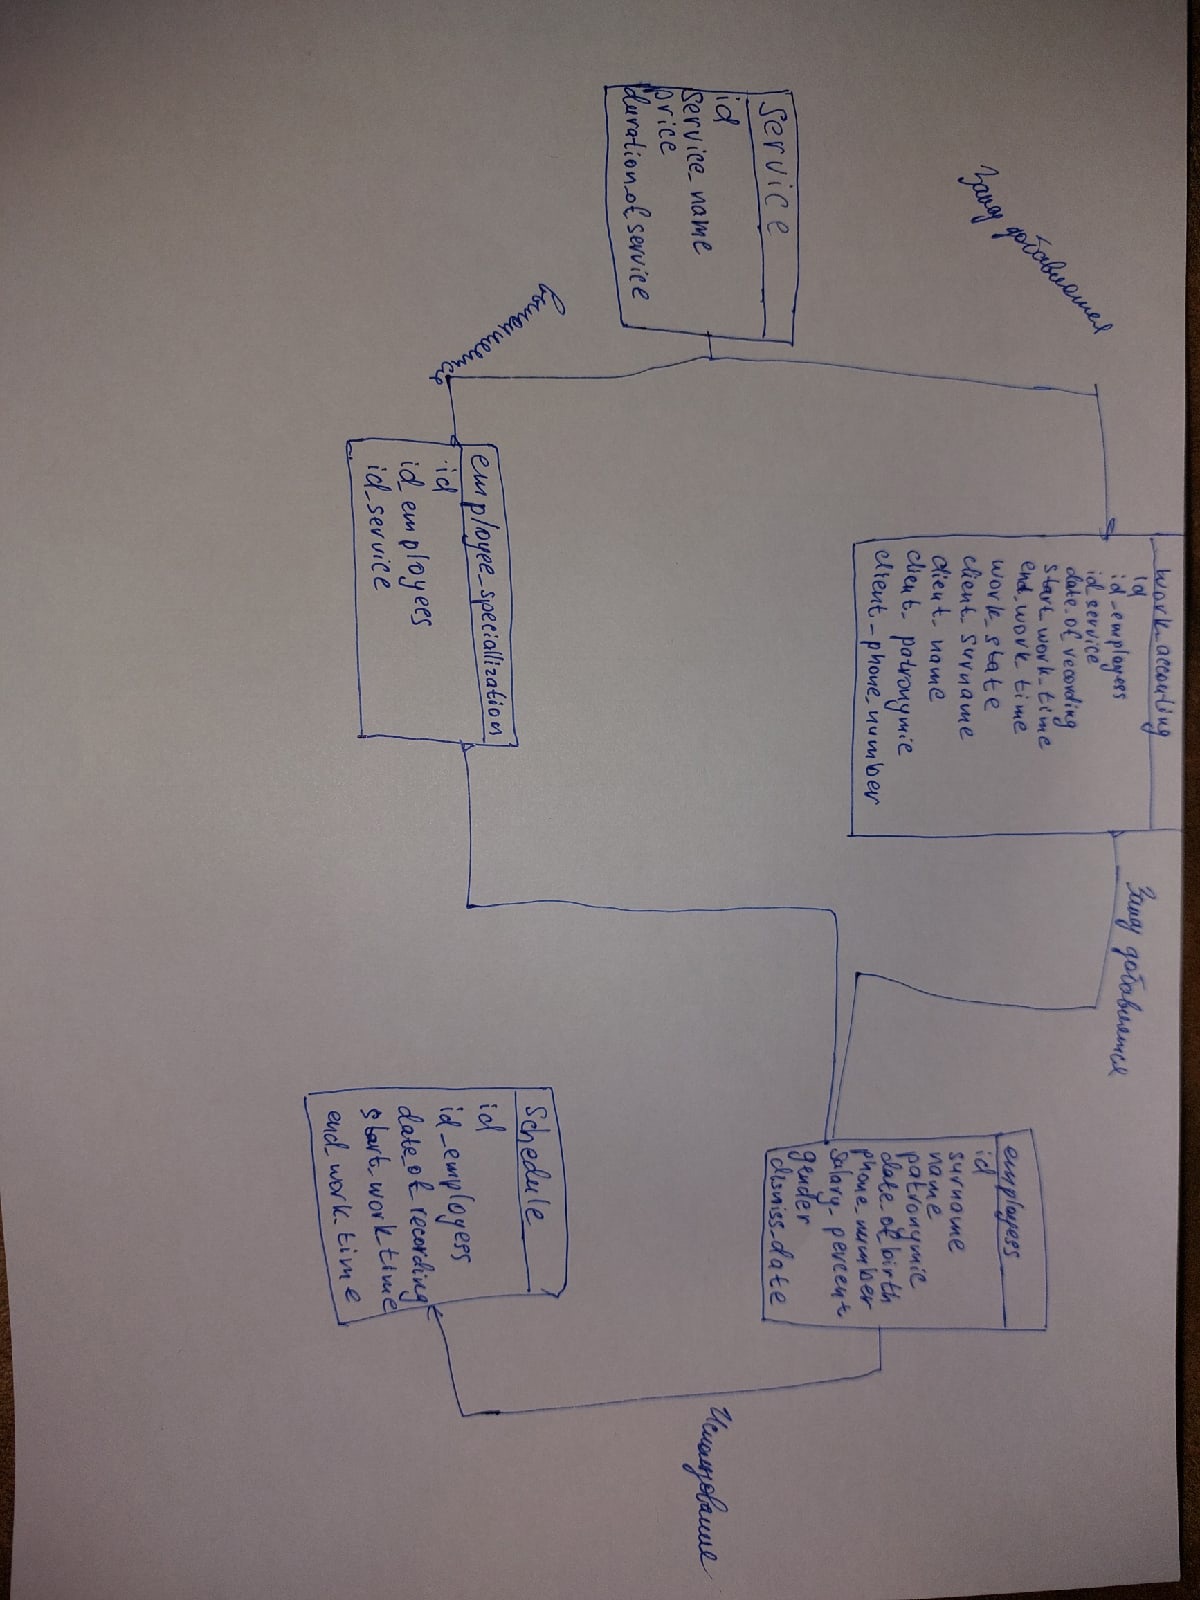 work_accouting
id
id_employess
id_service
date_of recording
start_work_time
end_work_time
work_state
client_surname
client_name
client_patronymic
client_phone_number
добавляется
добавляется
employess
id
surname
name
patronymic
date_of birth
phone_number
salary_percent
gender
dismiss_date
service
id
service_name
price
duration_of service
Использование
выполняется
employee_speciallization
id
id_employees
id_service
Schedule
id
id_employess
date_of recording
start_work_time
end_work_time